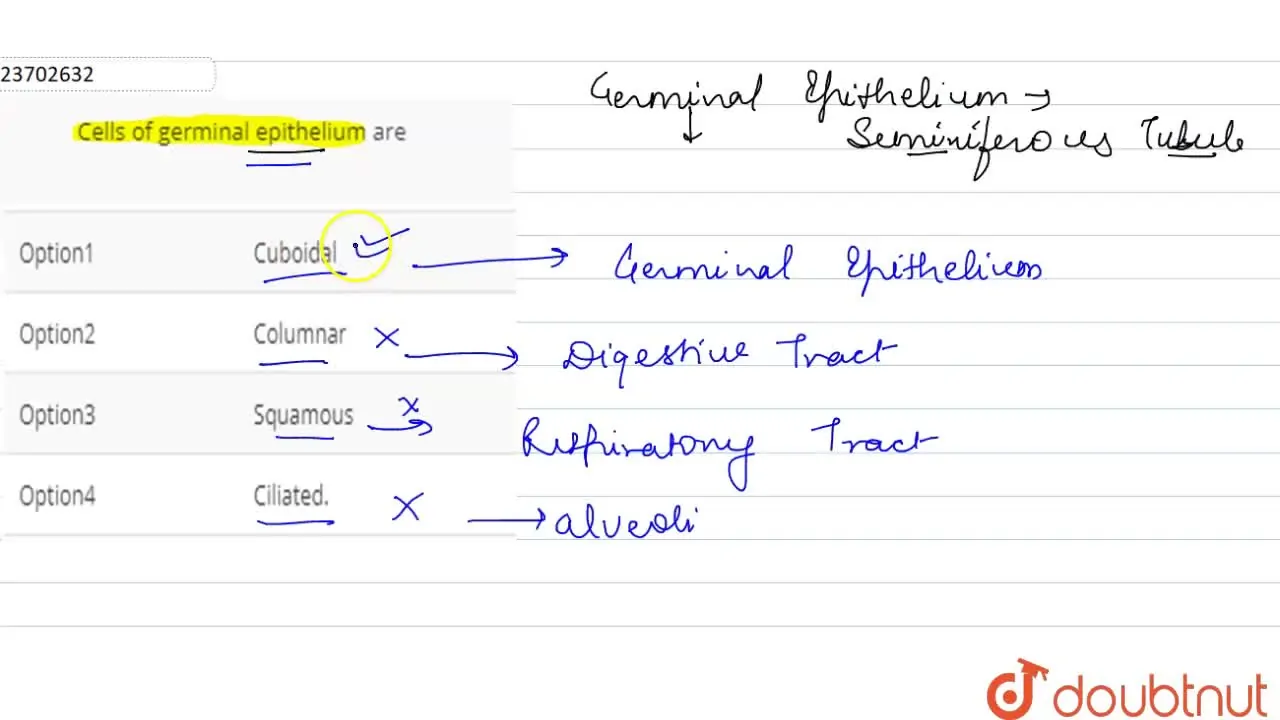 23702632
Germinal Epithelium →
Seminiferous Tubule
Cells of germinal epithelium are
Option1 Cuboidal Germinal Epithelium
Option2 Columnar X Digestive Tract
Option3 Squamous X Respiratory Tract
Option4 Ciliated. X alveoli
doubtnut